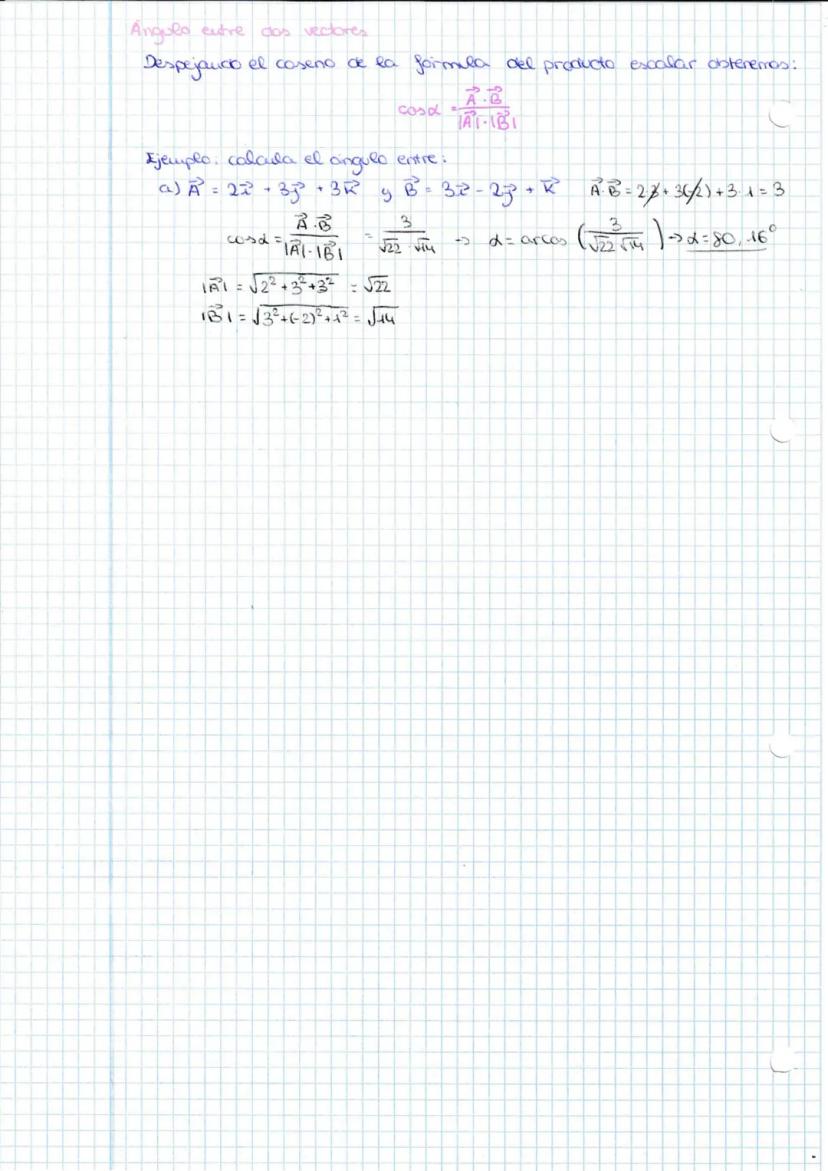 Ángulo entre dos vectores
Despejando el coseno de la fórmula del producto escalar obtenemos:
cosα = A⃗·B⃗ / |A⃗|·|B⃗|
Ejemplo: calcula el ángulo entre:
a) A⃗ = 2i⃗ + 3j⃗ + 3k⃗ y B⃗ = 3i⃗ - 2j⃗ + k⃗ A⃗·B⃗ = 2·3 + 3(-2) + 3·1 = 3
cosα = A⃗·B⃗ / |A⃗|·|B⃗| = 3 / √22·√14 → α = arcos (3 / √22 √14) → α = 80,16°
|A⃗| = √2² + 3² + 3² = √22
|B⃗| = √3² + (-2)² + 1² = √14